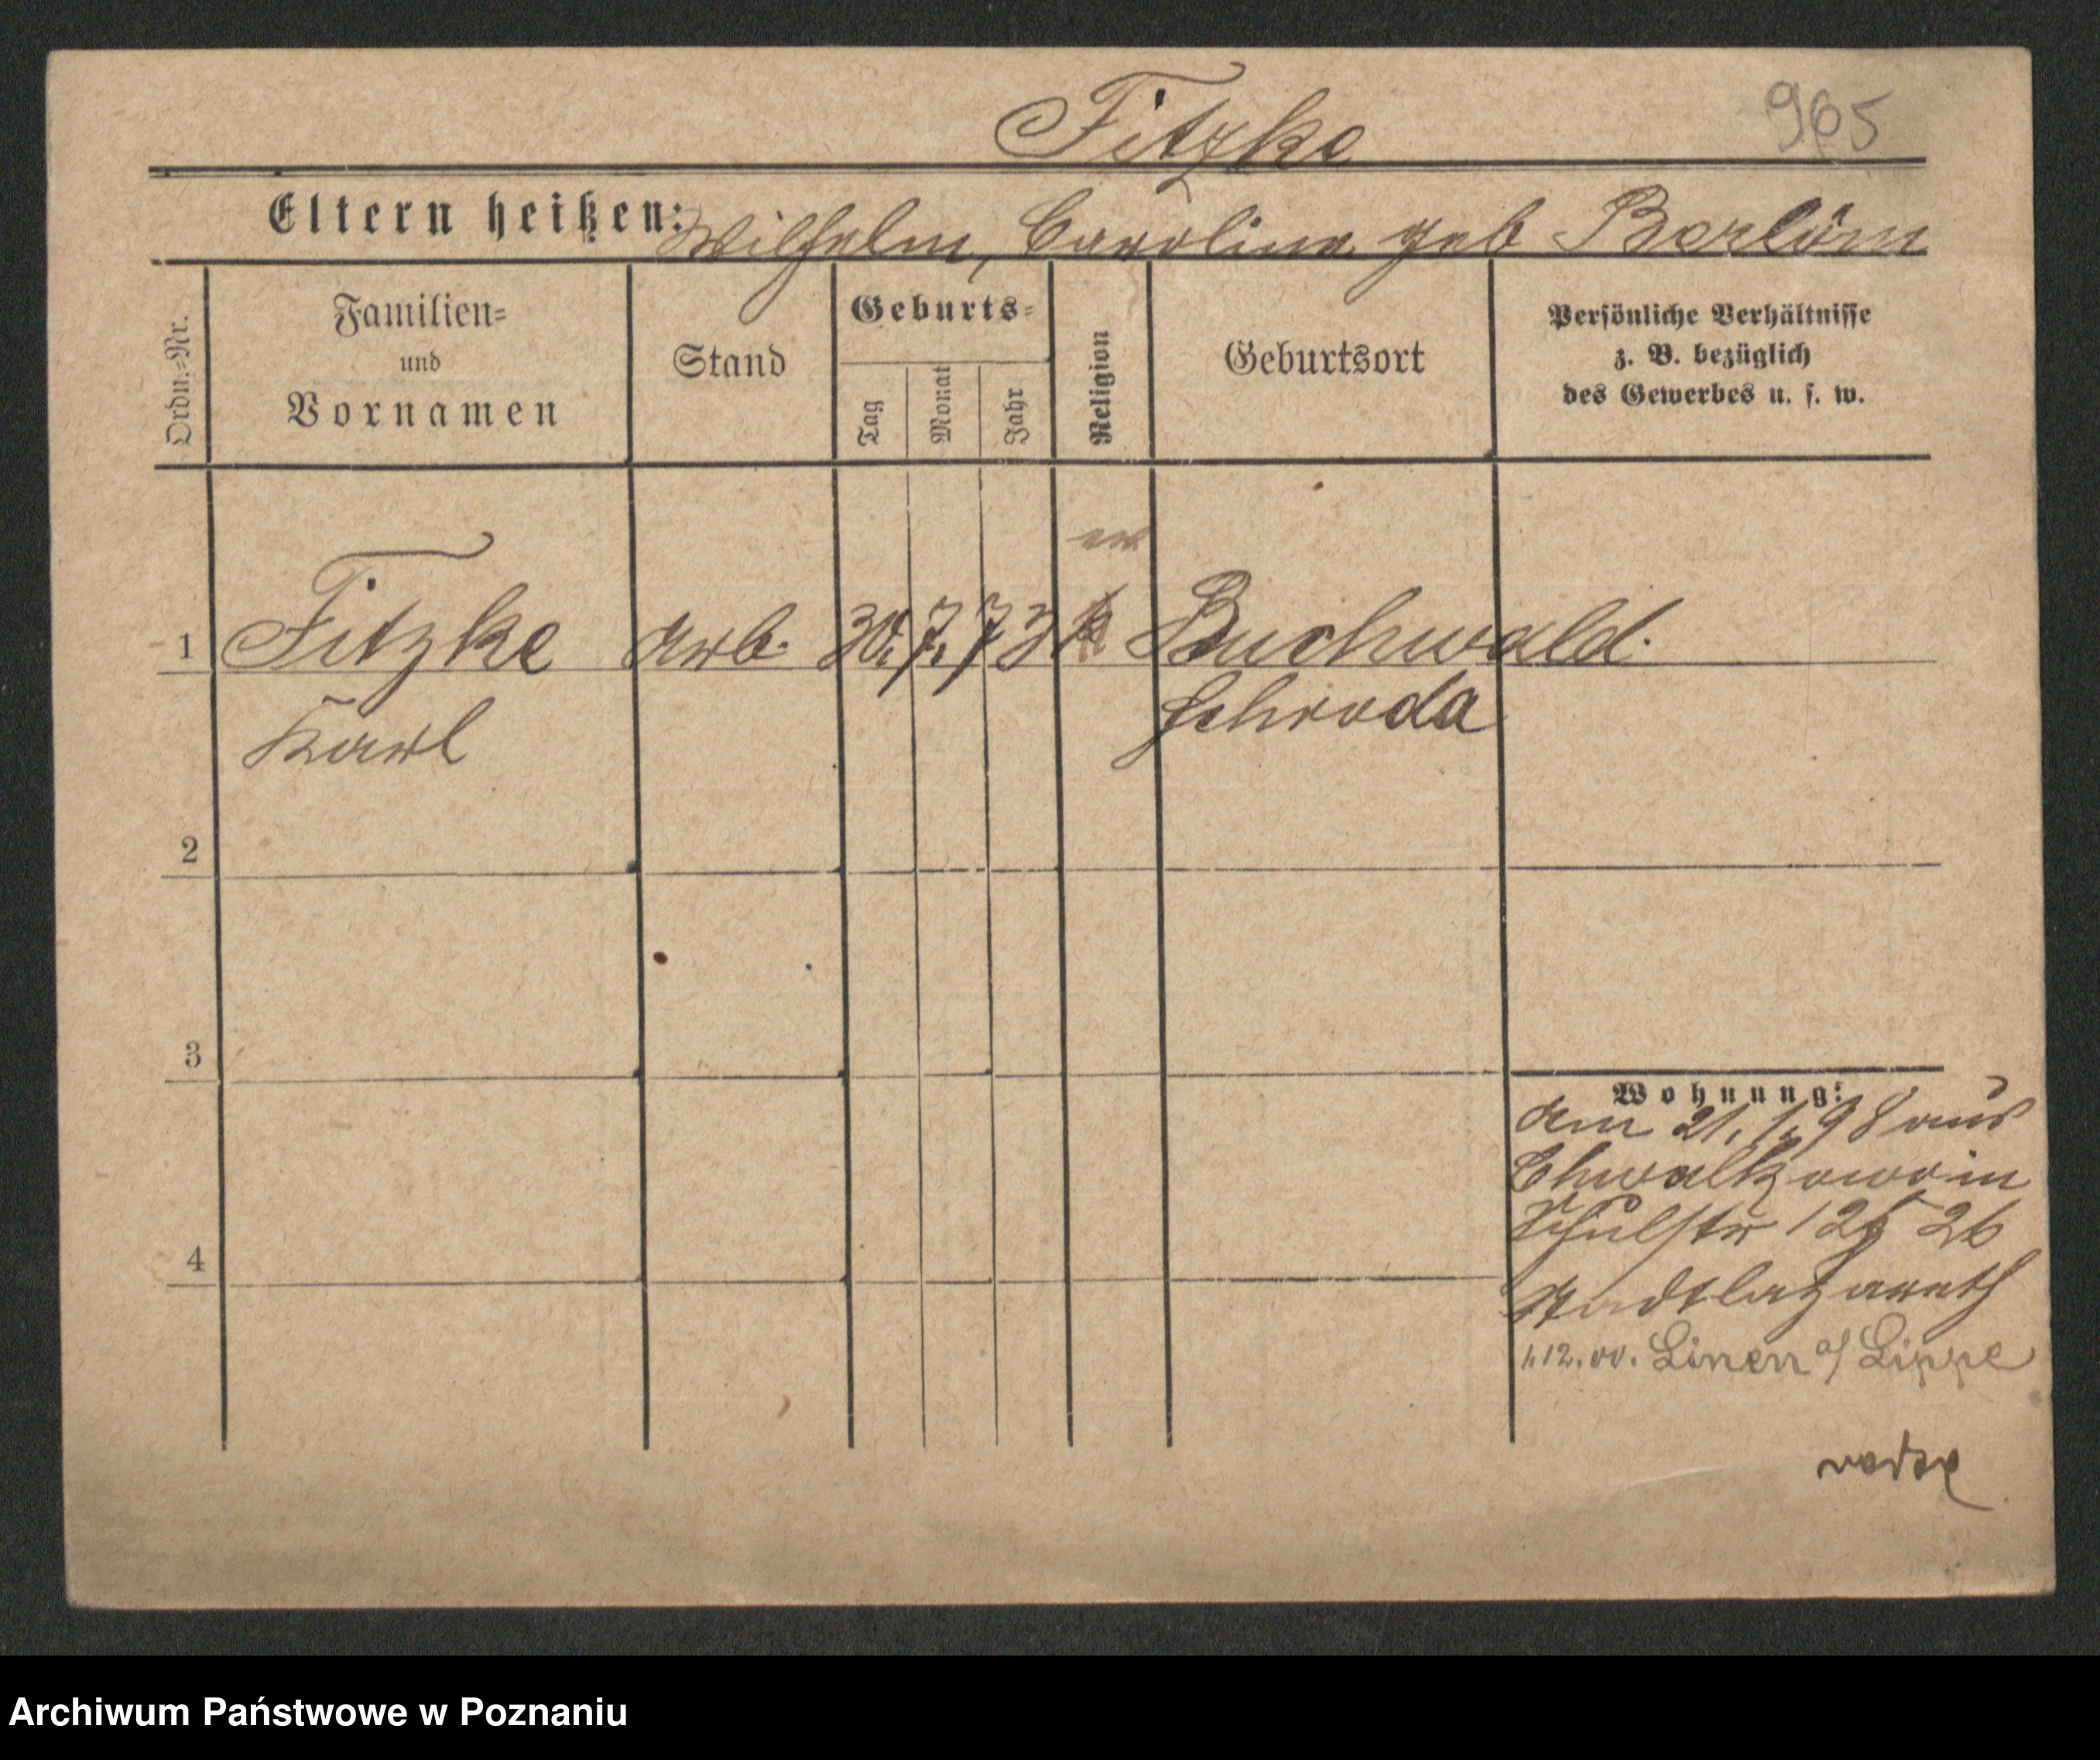 Fitzke
965
Eltern heißen: Wilhelm, Caroline geb Berlöm
Ordn.=Nr.
Familien=
und
Vornamen
Stand
Geburts=
Tag
Monat
Jahr
Religion
Geburtsort
Persönliche Verhältnisse
z. B. bezüglich
des Gewerbes u. s. w.
ev
1 Fitzke Arb. 30. 7. 73 k Buchwald.
Karl Schroda
2
3
4
Wohnung:
Am 21.1.98 aus
Chwalkowo in
Schulstr 12
Stadtlazareth
1.12.00. Lünen a/ Lippe
Archiwum Państwowe w Poznaniu